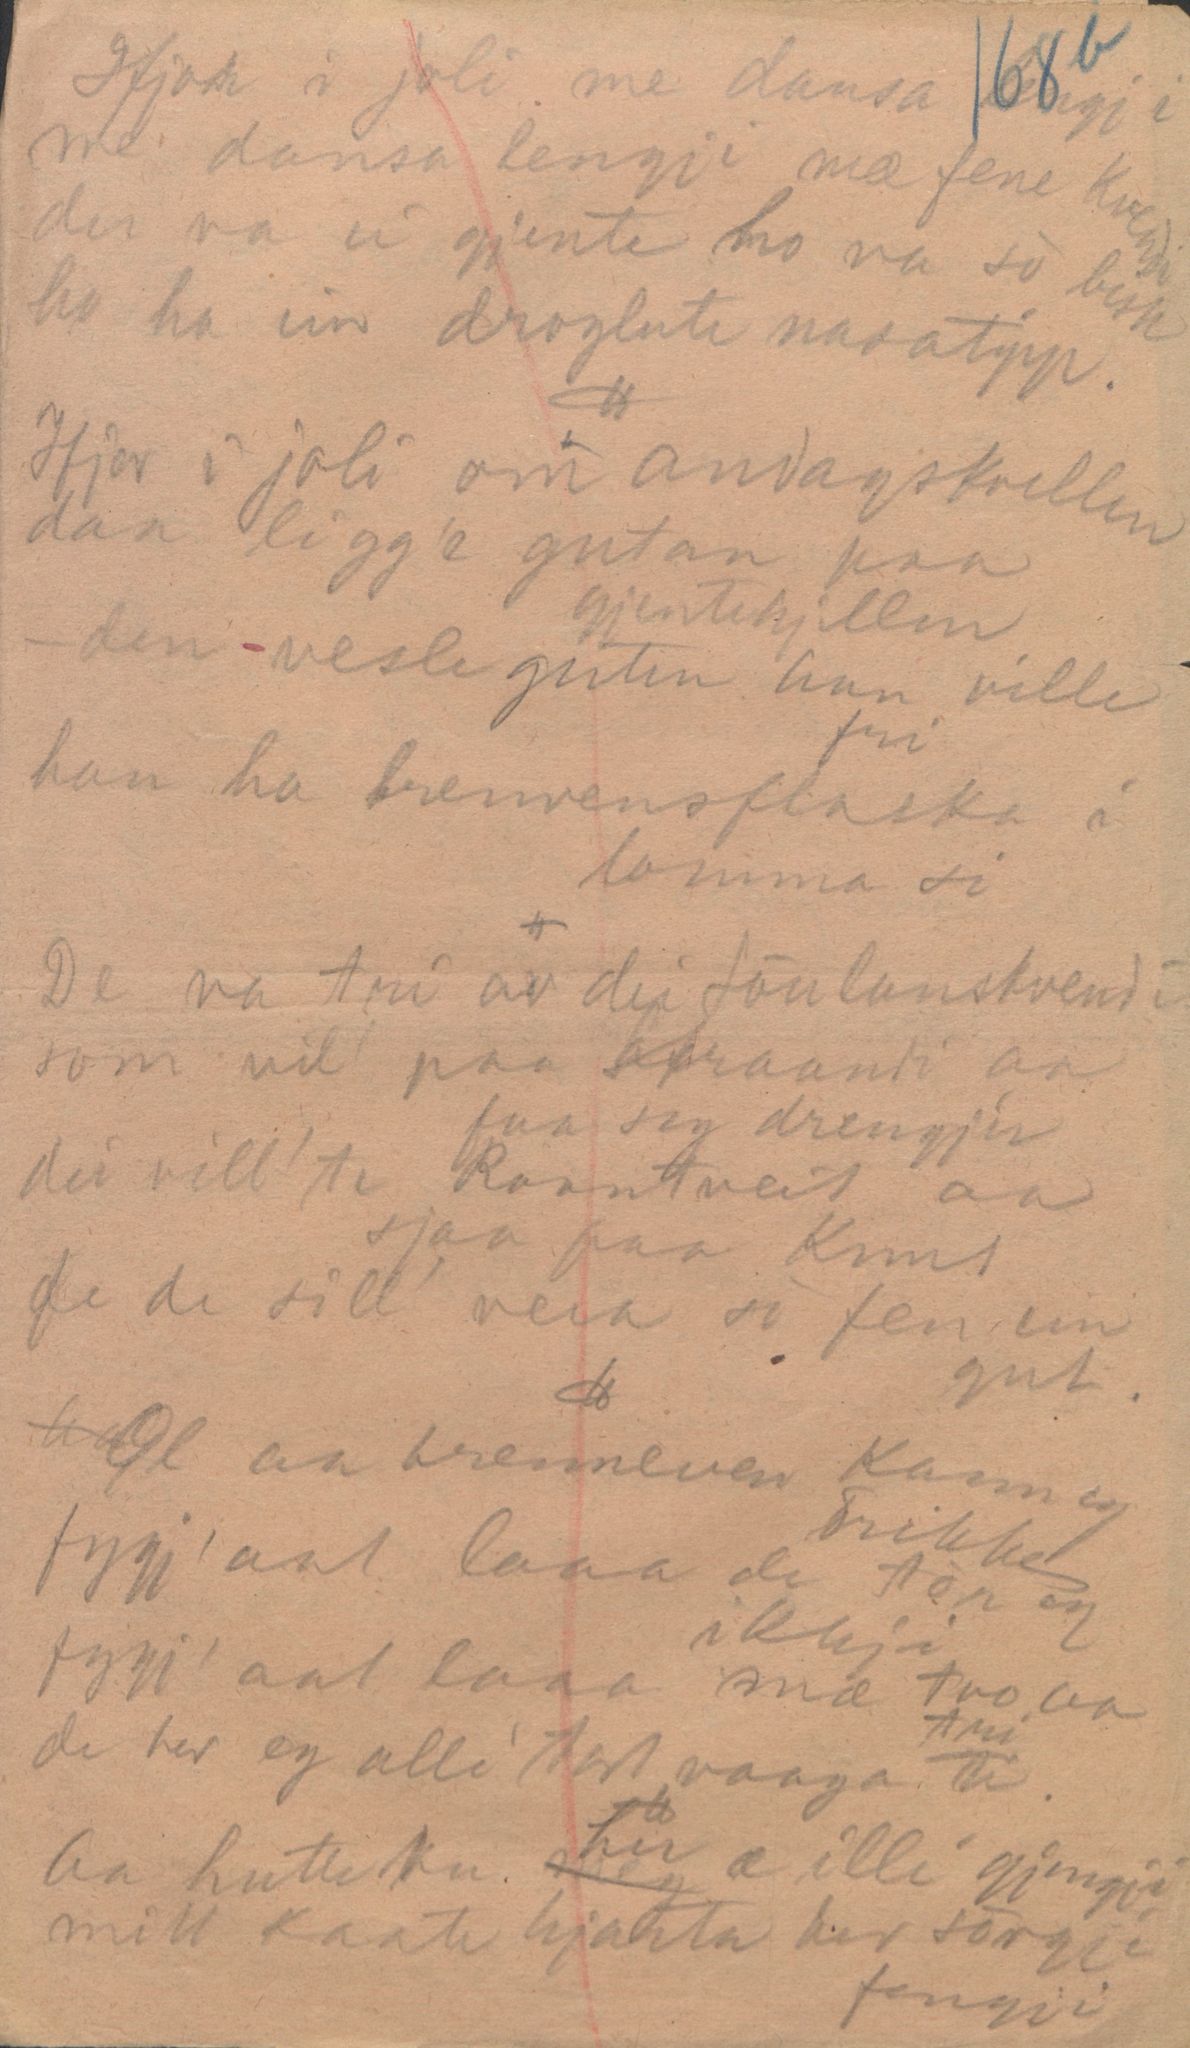 168 b
Ifjor i joli me dansa lengji
me dansa lengji mæ fene kvendi
der va ei gjente ho va sò bisk
ho ha ein droglute nasatipp.
Ifjor i joli om andagskvellen
daa ligg'e gutan paa
gjentehjellen
- den vesle guten han ville
fri
han ha brenvensflaska i
lomma si
De va tri av dei föulanskvendi
som vil' paa straandi aa
faa seg drengjir
dei vill' te Raantveit aa
sjaa paa Knut
fe de sill' vera sò fen ein
gut.
Øl aa brenneven kann eg
drikke
fygj' aat laaa de tòr eg
ikkji
fygj' aat laaa mæ two aa
tri
de her eg alli' tort vaaga te.
Aa huttetu. her æ illi' gjengji
mitt kaate hjarta her sorgji
fengji